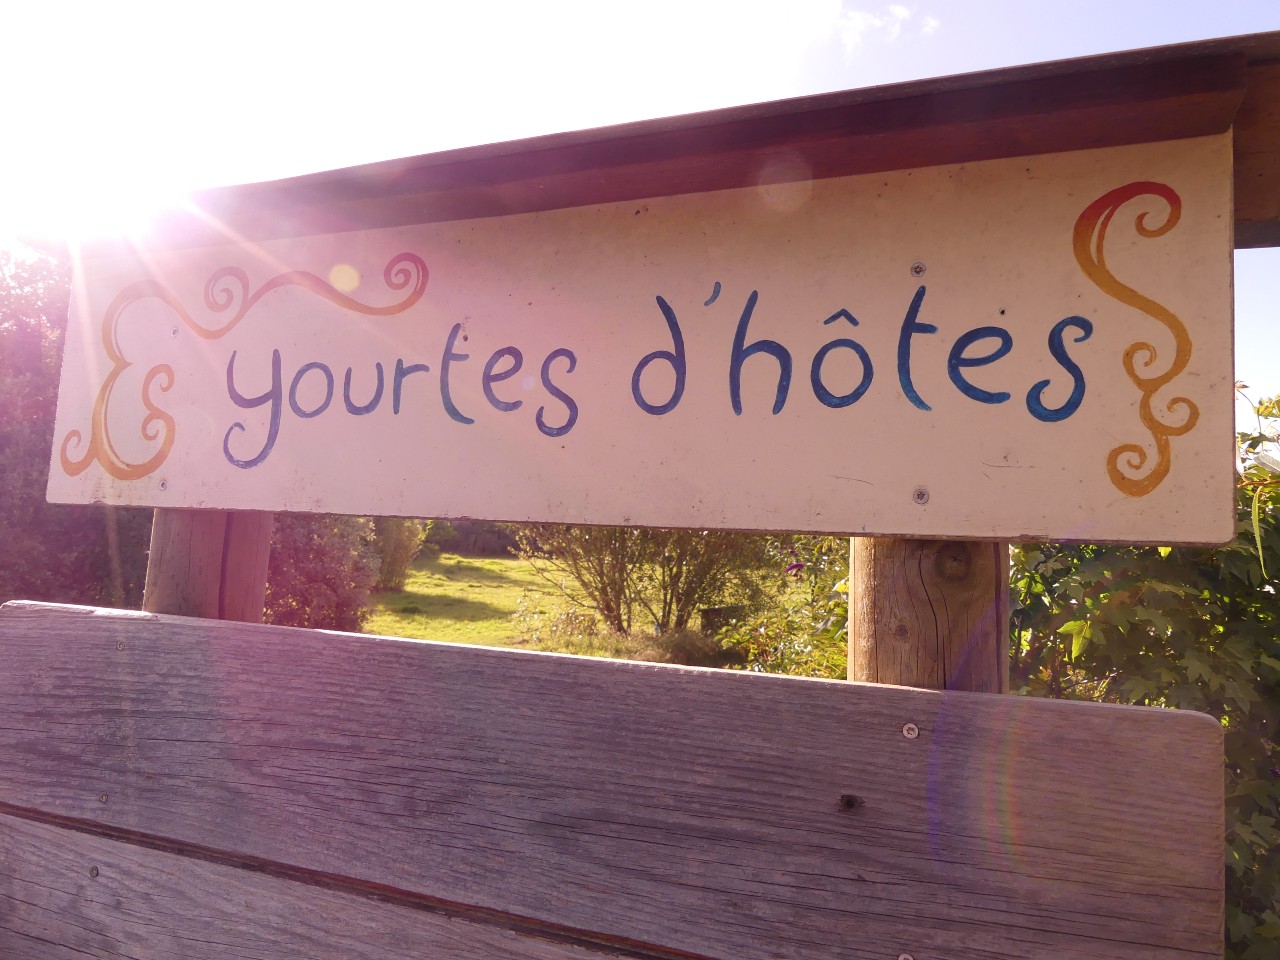 yourtes d'hôtes